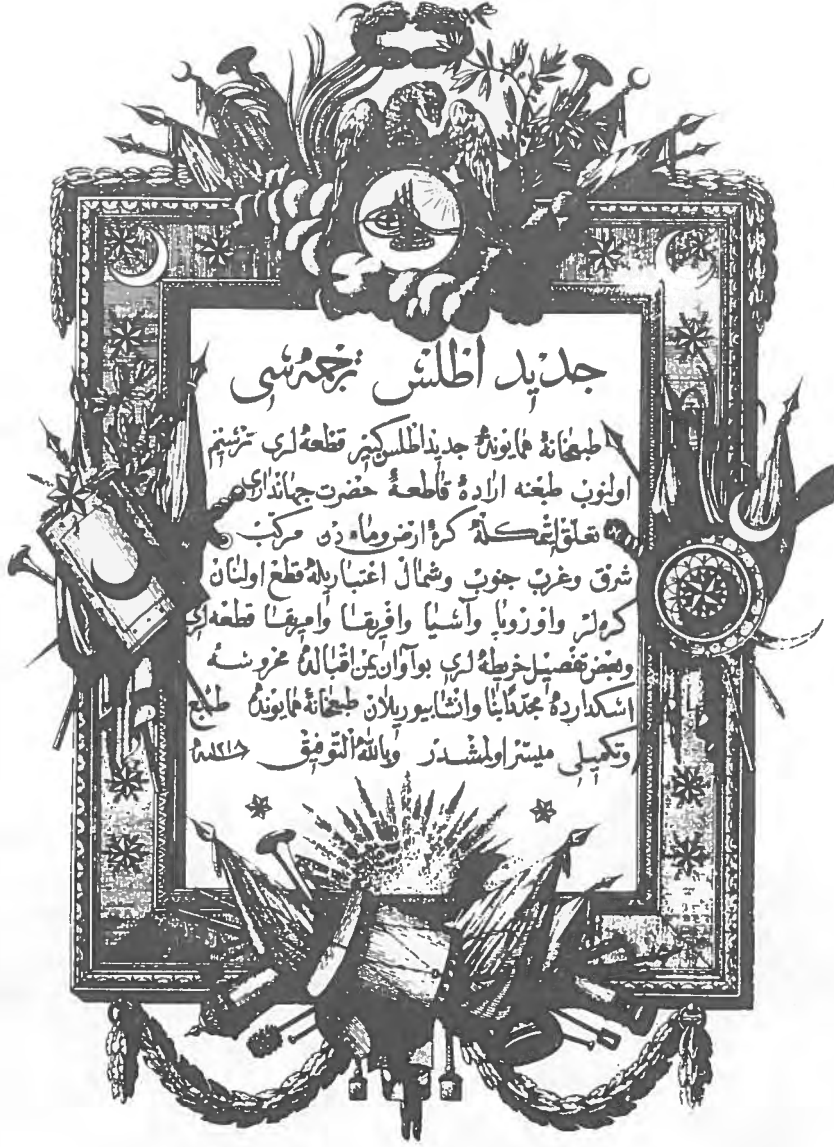 جديد اطلس ترجمه سى
طبعخانهٔ همايونده جديد اطلس كبير قطعه لرى ترسيم
اولنوب طبعنه ارادهٔ قاطعهٔ حضرت جهاندارى
تعلق ايتمكله كرهٔ ارض وماء دن مركب
شرق وغرب جنوب وشمال اعتباريله قطع اولنان
كره لر واوروپا وآسيا وافريقا وامريقا قطعه لرى
وبعض تفصيل خريطه لرى بو آوان يمن اقبالده محروسهٔ
اسكدارده مجددا بنا وانشا بيوريلان طبعخانهٔ همايونده طبع
وتكميلى ميسر اولمشدر وبالله التوفيق ١٢١٨ سنه